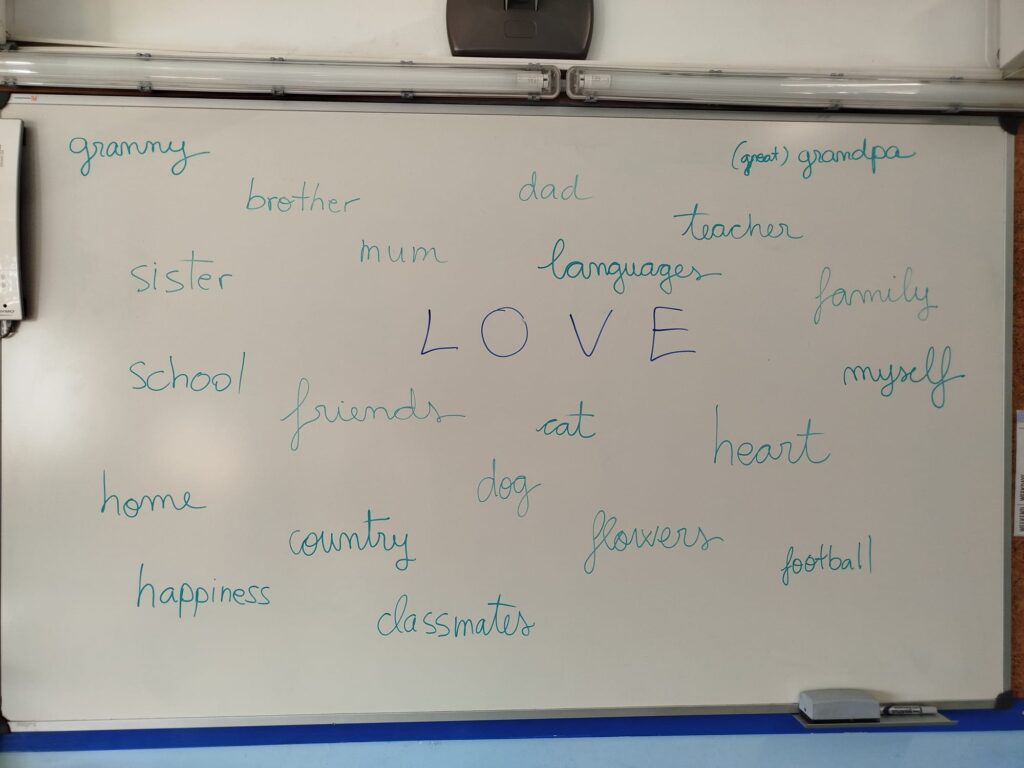 granny
(great) grandpa
brother
dad
teacher
mum
languages
sister
family
LOVE
school
myself
friends
cat
heart
dog
home
country
flowers
football
happiness
classmates